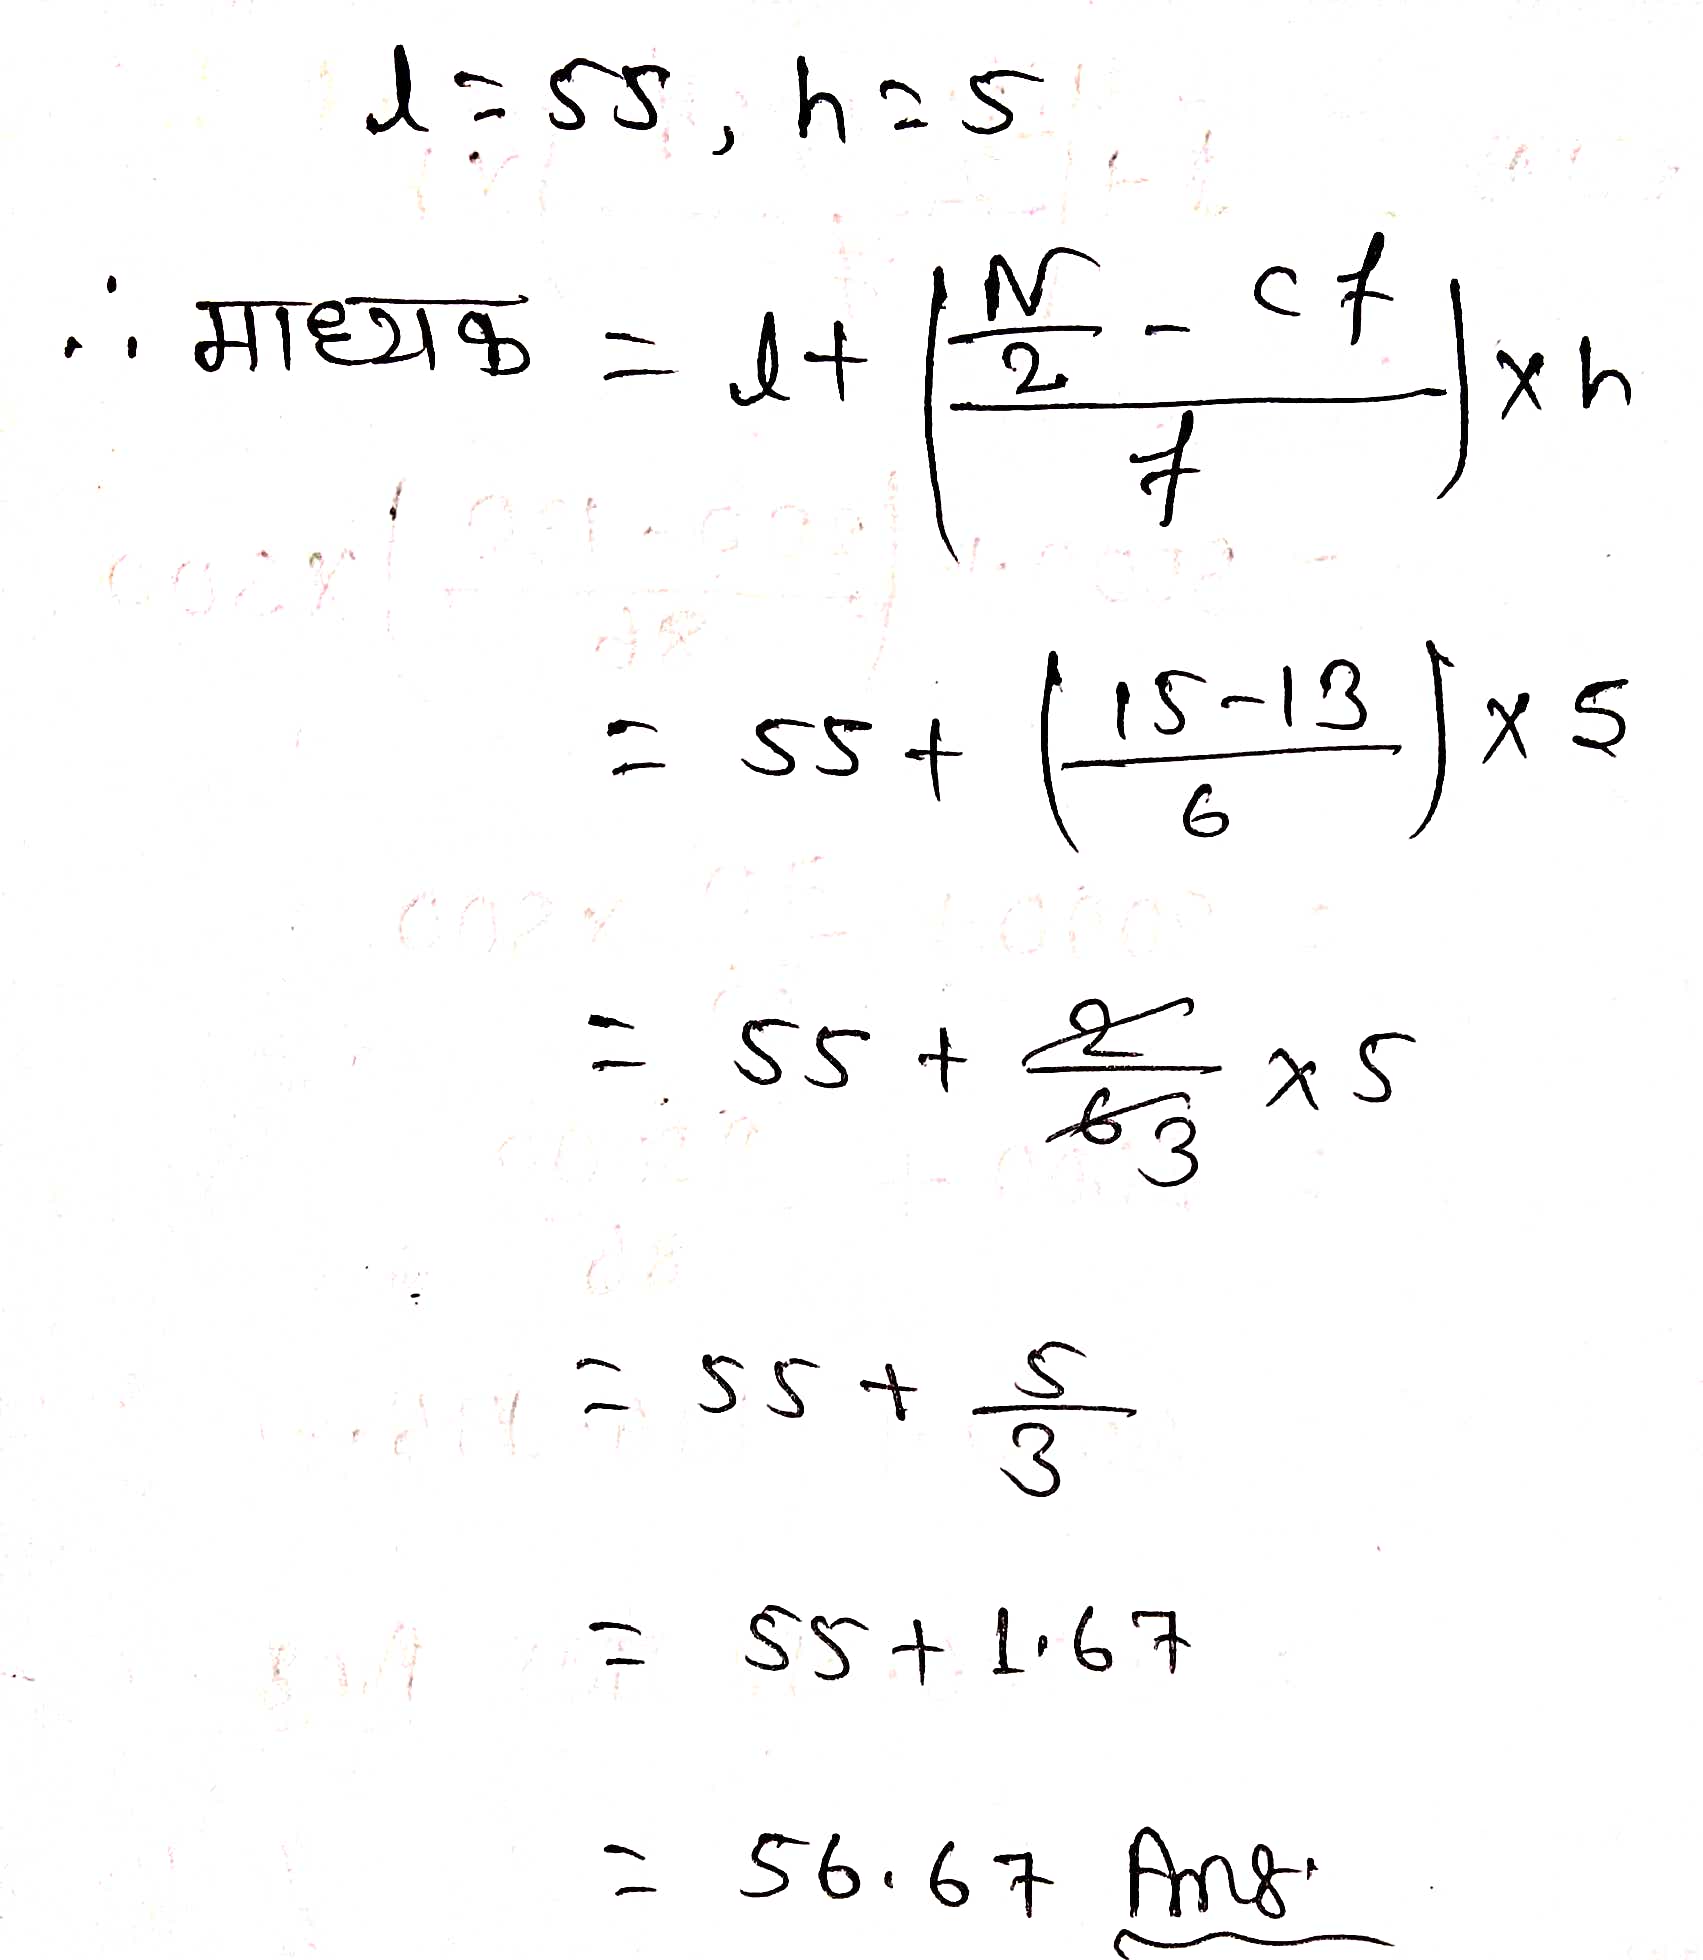 l = 55, h = 5
∴ माध्यक = l + ( (N/2 - cf) / f ) × h
= 55 + ( (15-13) / 6 ) × 5
= 55 + 2/6 3 × 5
= 55 + 5/3
= 55 + 1.67
= 56.67 Ans.